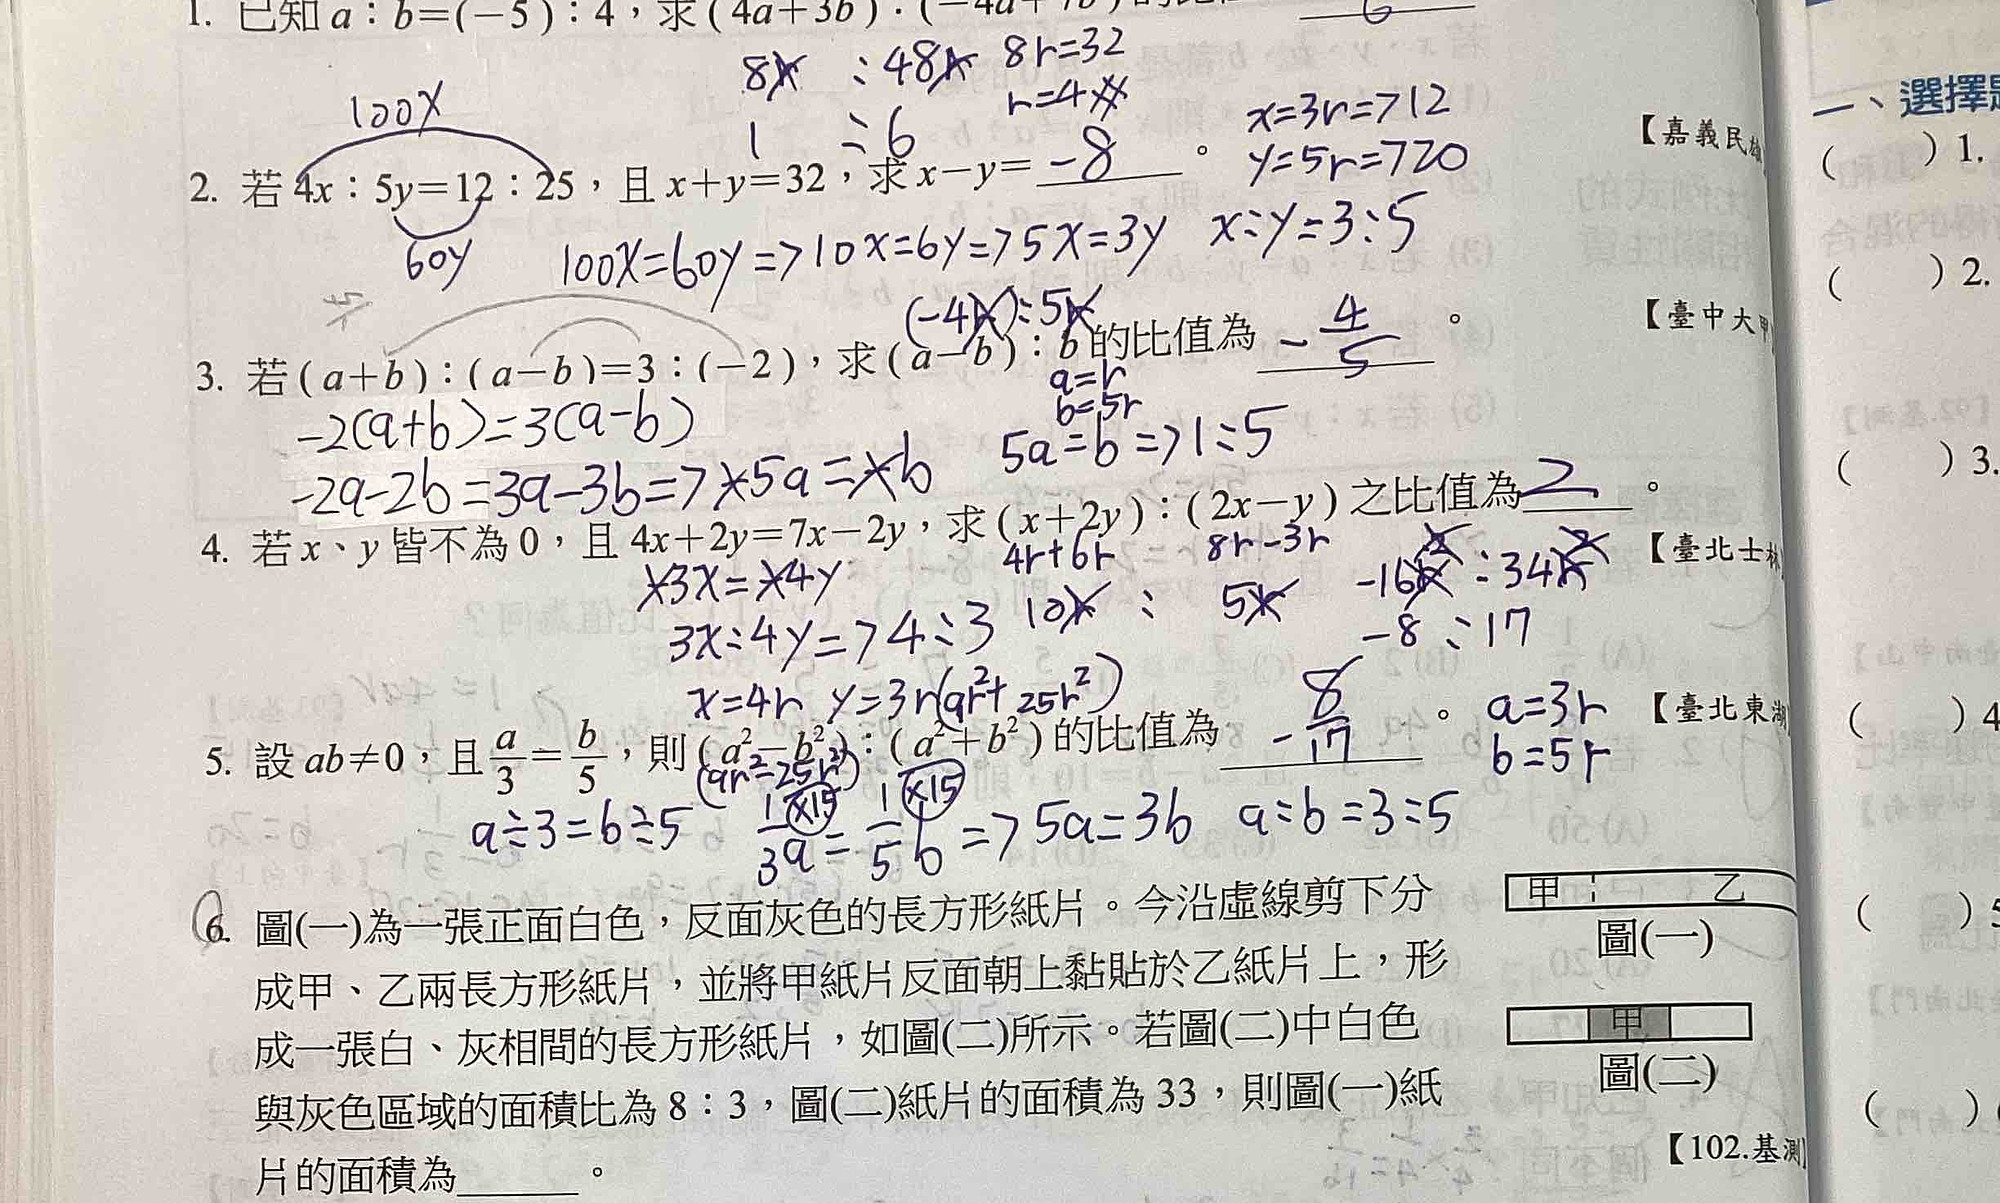 1. 已知 a：b＝(－5)：4，求(4a＋3b)：(－4a＋
6
8r：48r 8r=32
r=4#
1：6
100x
x=3r=>12
y=5r=>20
2. 若 4x：5y＝12：25，且 x＋y＝32，求 x－y＝ -8 。
【嘉義民雄
60y
100x=60y=>10x=6y=>5x=3y x:y=3:5
(-4r):5r
3. 若(a＋b)：(a－b)＝3：(－2)，求(a－b)：b 的比值為 -4/5 。
【臺中大甲
a=r
b=5r
-2(a+b)=3(a-b)
-2a-2b=3a-3b=>-5a=-b 5a=b=>1:5
4. 若 x、y 皆不為 0，且 4x＋2y＝7x－2y，求(x＋2y)：(2x－y)之比值為 2 。
【臺北士林
4r+6r 8r-3r
-3x=-4y 10r：5r -16r²:34r²
3x:4y=>4:3 -8:17
x=4r y=3r (9r²+25r²)
5. 設 ab≠0，且 a/3＝b/5，則(a²－b²)：(a²＋b²)的比值為 -8/17 。
【臺北東湖
a=3r
b=5r
(9r²-25r²)
a÷3=b÷5 1/3 a ×15 = 1/5 b ×15 =>5a=3b a:b=3:5
6. 圖(一)為一張正面白色，反面灰色的長方形紙片。今沿虛線剪下分
成甲、乙兩長方形紙片，並將甲紙片反面朝上黏貼於乙紙片上，形
成一張白、灰相間的長方形紙片，如圖(二)所示。若圖(二)中白色
與灰色區域的面積比為 8：3，圖(二)紙片的面積為 33，則圖(一)紙
片的面積為 。
【102.基測】
甲 乙
圖(一)
甲
圖(二)
一、選擇題
( ) 1.
( ) 2.
( ) 3.
( ) 4
( ) 5
( )